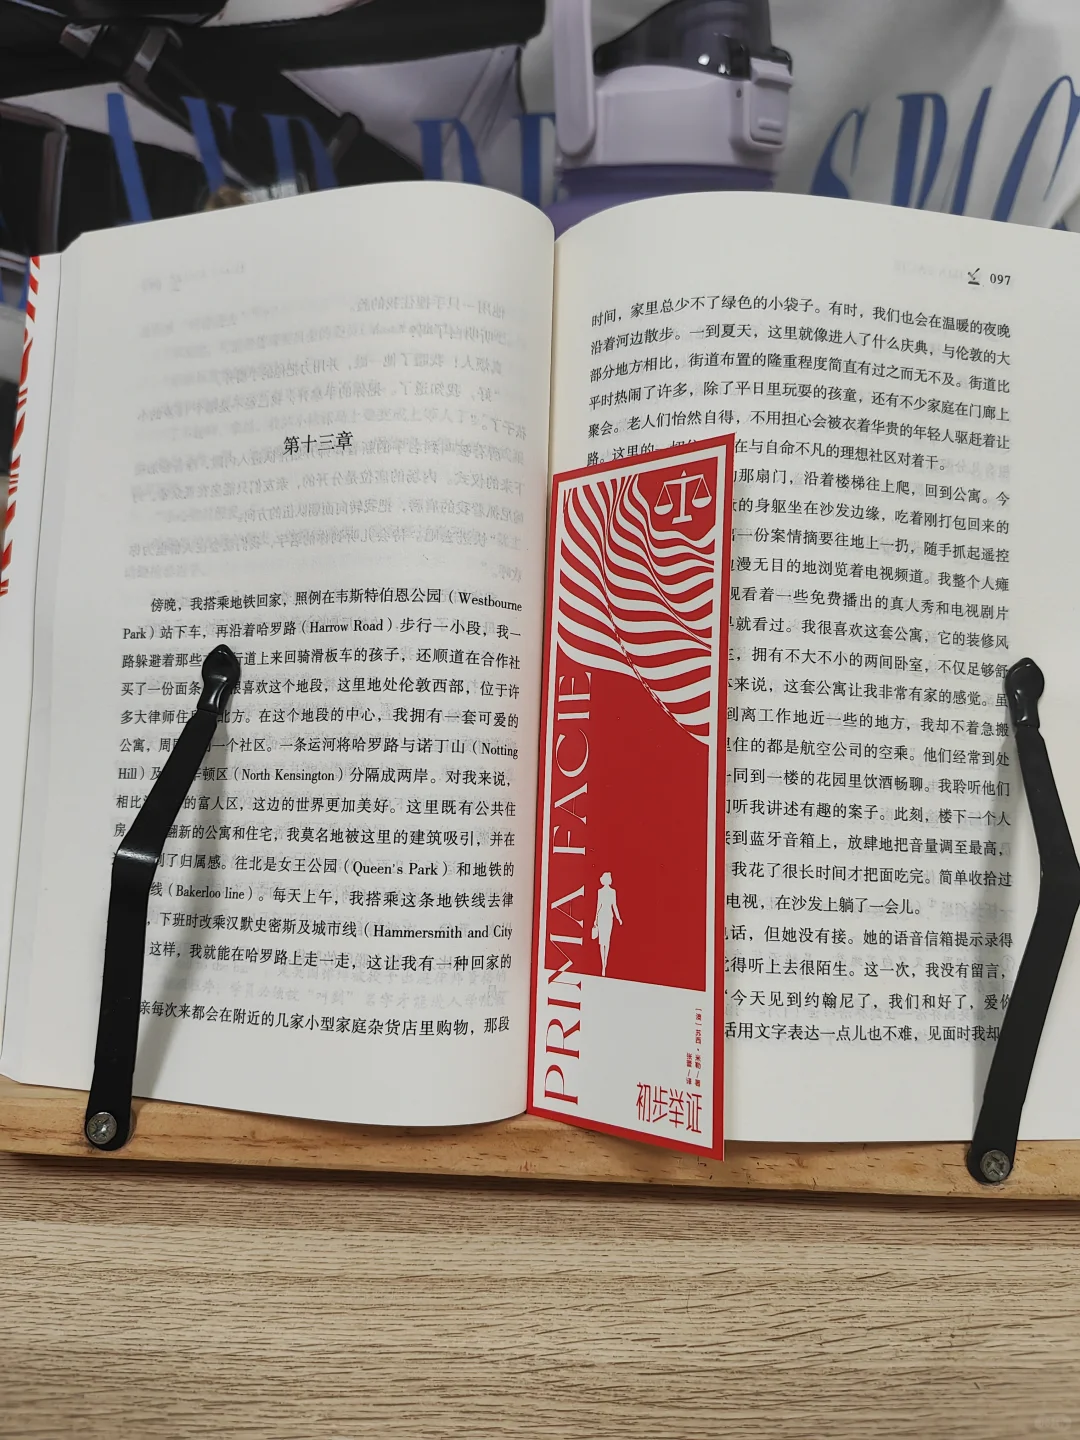 AND DE SPAC
第十三章
傍晚，我搭乘地铁回家，照例在韦斯特伯恩公园（Westbourne
Park）站下车，再沿着哈罗路（Harrow Road）步行一小段，我一
路躲避着那些 行道上来回骑滑板车的孩子，还顺道在合作社
买了一份面条 很喜欢这个地段，这里地处伦敦西部，位于许
多大律师住 北方。在这个地段的中心，我拥有一套可爱的
公寓，周 一个社区。一条运河将哈罗路与诺丁山（Notting
Hill）及 顿区（North Kensington）分隔成两岸。对我来说，
相比 的富人区，这边的世界更加美好。这里既有公共住
房 翻新的公寓和住宅，我莫名地被这里的建筑吸引，并在
到了归属感。往北是女王公园（Queen's Park）和地铁的
线（Bakerloo line）。每天上午，我搭乘这条地铁线去律
，下班时改乘汉默史密斯及城市线（Hammersmith and City
这样，我就能在哈罗路上走一走，这让我有一种回家的
亲每次来都会在附近的几家小型家庭杂货店里购物，那段
097
时间，家里总少不了绿色的小袋子。有时，我们也会在温暖的夜晚
沿着河边散步。一到夏天，这里就像进入了什么庆典，与伦敦的大
部分地方相比，街道布置的隆重程度简直有过之而无不及。街道比
平时热闹了许多，除了平日里玩耍的孩童，还有不少家庭在门廊上
聚会。老人们怡然自得，不用担心会被衣着华贵的年轻人驱赶着让
路。这里的一切 在与自命不凡的理想社区对着干。
那扇门，沿着楼梯往上爬，回到公寓。今
的身躯坐在沙发边缘，吃着刚打包回来的
一份案情摘要往地上一扔，随手抓起遥控
漫无目的地浏览着电视频道。我整个人瘫
观看着一些免费播出的真人秀和电视剧片
早就看过。我很喜欢这套公寓，它的装修风
，拥有不大不小的两间卧室，不仅足够舒
本来说，这套公寓让我非常有家的感觉。虽
到离工作地近一些的地方，我却不着急搬
里住的都是航空公司的空乘。他们经常到处
一同到一楼的花园里饮酒畅聊。我聆听他们
们听我讲述有趣的案子。此刻，楼下一个人
接到蓝牙音箱上，放肆地把音量调至最高，
我花了很长时间才把面吃完。简单收拾过
电视，在沙发上躺了一会儿。
电话，但她没有接。她的语音信箱提示录得
得听上去很陌生。这一次，我没有留言，
“今天见到约翰尼了，我们和好了，爱你
话用文字表达一点儿也不难，见面时我却
PRIMA FACIE
[澳] 苏西·米勒/著
张蕾/译
初步举证